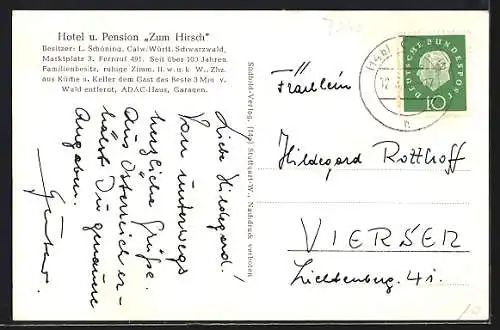 Hotel u. Pension „Zum Hirsch"
Besitzer: L. Schöning, Calw/Württ. Schwarzwald,
Marktplatz 3, Fernruf 491. Seit über 100 Jahren
Familienbesitz, ruhige Zimm. fl. w. u. k. W., Zhz.
aus Küche u. Keller dem Gast das Beste 3 Min. v.
Wald entfernt, ADAC-Haus, Garagen.
Liebe Hildegard!
Von unterwegs
herzliche Grüße.
Aus Österreich er-
hälst Du genauere
Angaben.
Günter
Südbild-Verlag, (14a) Stuttgart-W. Nachdruck verboten
(14b)
DEUTSCHE BUNDESPOST
10
Fräulein
Hildegard Rotthoff
VIERSEN
Lichtenberg 41.